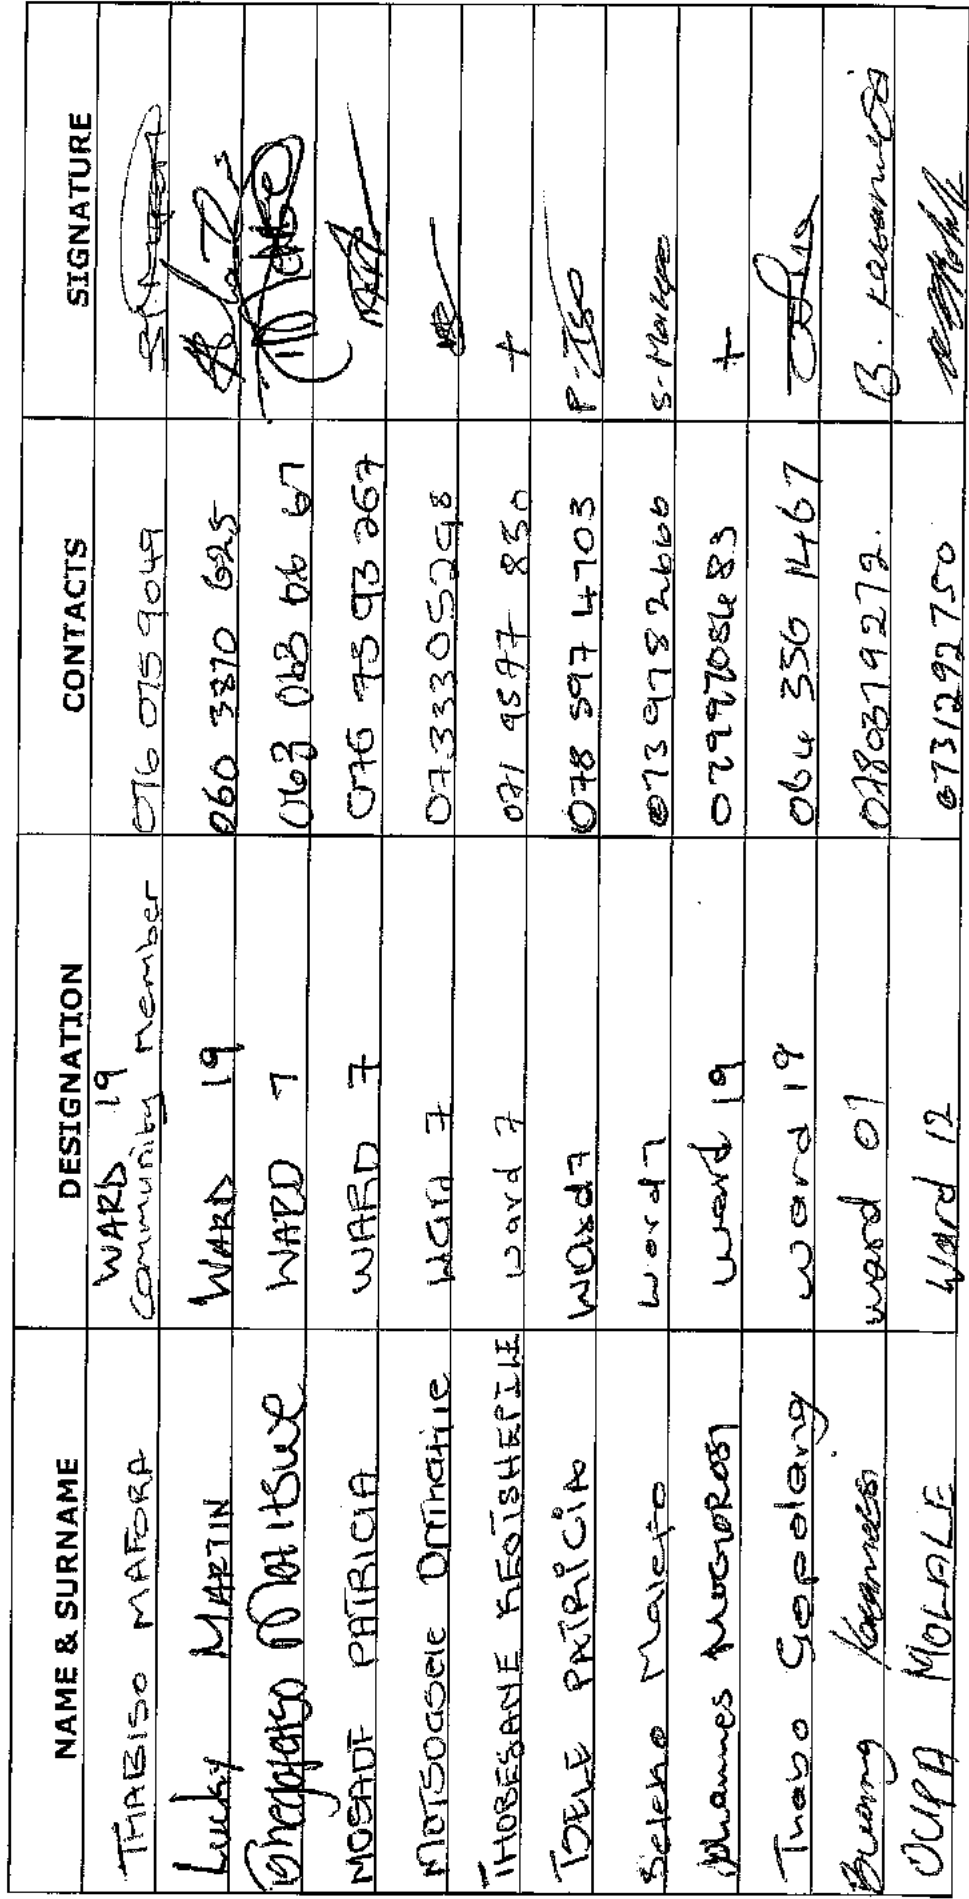 NAME & SURNAME DESIGNATION CONTACTS SIGNATURE
THABISO MAFORA WARD 19 Community Member 076 075 9049
Lucky MARTIN WARD 19 060 3870 625
Matitswe WARD 7 063 063 66 67
MOSADI PATRICIA WARD 7 076 7593 267
MOTSOAGELE Ward 7 0733305298
THOBESANE KEOTSHEPILE Ward 7 071 9577 850
TSELE PATRICIA Ward 7 078 597 4703 P. Tse
Seleho Malepo Ward 7 0739782666 S. Malepo
Johannes MOGOROSI Ward 19 +
Thabo Gopolang Ward 19 064 356 1467
Ward 07 0780379272. B.
OUPA MOLALE Ward 12 0731292750